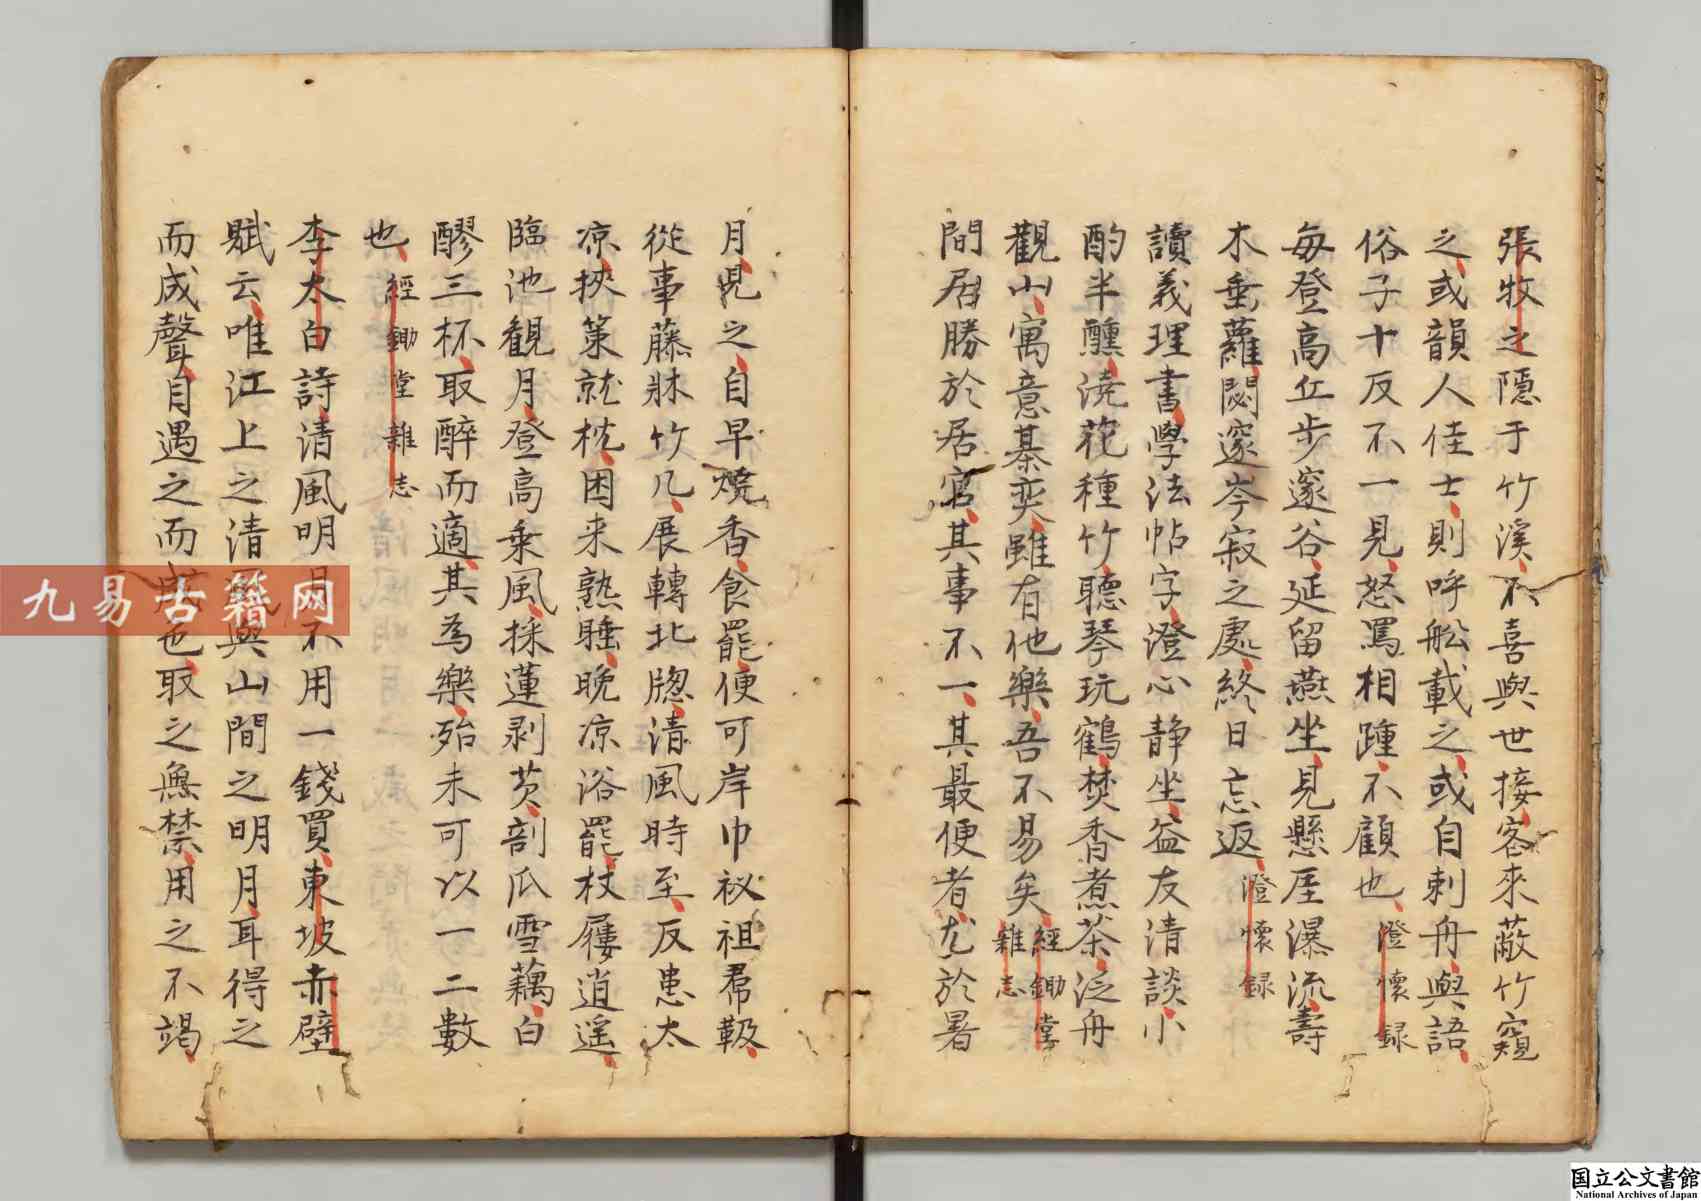 張牧之隠于竹溪不喜與世接客來蔽竹窺
之或韻人佳士則呼舩載之或自刺舟與語
俗子十反不一見怒罵相踵不顧也澄懐録
毎登高丘步邃谷延留燕坐見懸厓瀑流壽
木垂蘿閟邃岑寂之處終日忘返澄懐録
讀義理書學法帖字澄心静坐益友清談小
酌半醺澆花種竹聴琴玩鶴焚香煮茶泛舟
觀山寓意棊奕雖有他樂吾不易矣經鋤堂雜志
間居勝於居官其事不一其最便者尤於暑
月見之自早燒香食罷便可岸巾袐祖帬靸
從事藤牀竹几展轉北牕清風時至反患太
凉挾策就枕困来熟睡晩凉浴罷杖屨逍遥
臨池観月登高乗風採蓮剥芡剖瓜雪藕白
醪三杯取醉而適其為樂殆未可以一二數
也經鋤堂雜志
李太白詩清風明月不用一錢買東坡赤壁
賦云唯江上之清風與山間之明月耳得之
而成聲目遇之而成色取之無禁用之不竭
九易古籍网
国立公文書館
National Archives of Japan